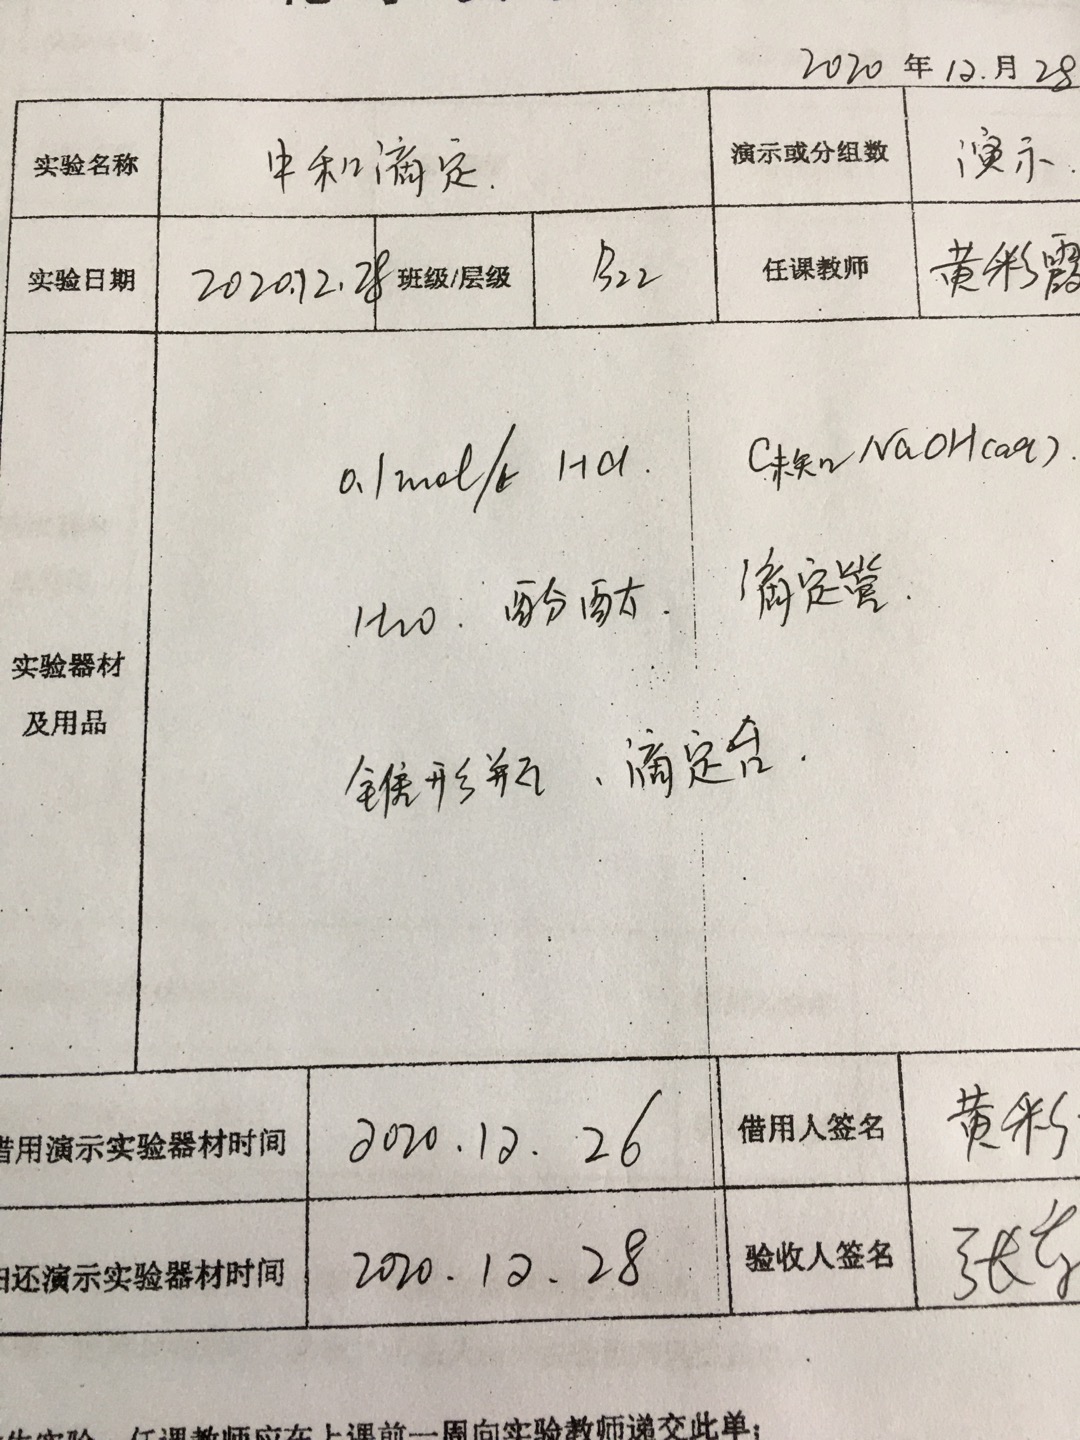 2020 年 12.月 28
实验名称 中和滴定. 演示或分组数 演示.
实验日期 2020.12.28 班级/层级 B22 任课教师 黄彩霞
0.1mol/L HCl. C未知 NaOH(aq).
H2O. 酚酞. 滴定管.
实验器材
及用品
锥形瓶、滴定台.
借用演示实验器材时间 2020.12.26 借用人签名 黄彩
归还演示实验器材时间 2020.12.28 验收人签名 张
生实验，任课教师应在上课前一周向实验教师递交此单；